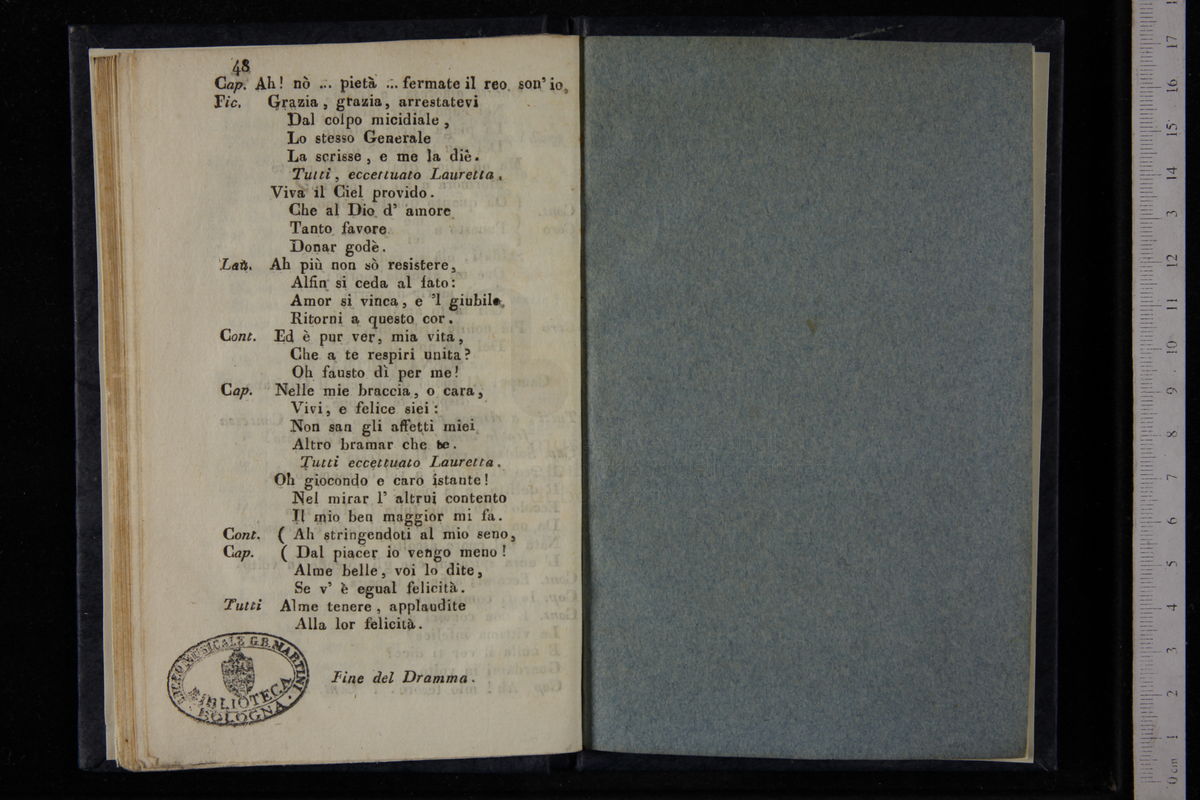 48
Cap. Ah! nò ... pietà ... fermate il reo son' io,
Fic. Grazia, grazia, arrestatevi
Dal colpo micidiale,
Lo stesso Generale
La scrisse, e me la diè.
Tutti, eccettuato Lauretta.
Viva il Ciel provido.
Che al Dio d' amore
Tanto favore
Donar godè.
Lau. Ah più non sò resistere,
Alfin si ceda al fato:
Amor si vinca, e 'l giubilo
Ritorni a questo cor.
Cont. Ed è pur ver, mia vita,
Che a te respiri unita?
Oh fausto dì per me!
Cap. Nelle mie braccia, o cara,
Vivi, e felice siei:
Non san gli affetti miei
Altro bramar che te.
Tutti eccettuato Lauretta.
Oh giocondo e caro istante!
Nel mirar l' altrui contento
Il mio ben maggior mi fa.
Cont. ( Ah stringendoti al mio seno,
Cap. ( Dal piacer io vengo meno!
Alme belle, voi lo dite,
Se v' è egual felicità.
Tutti Alme tenere, applaudite
Alla lor felicità.
Fine del Dramma.
LICEO MUSICALE G.B. MARTINI
BIBLIOTECA
BOLOGNA
17
16
15
14
3
12
11
10
9
8
7
6
5
4
3
2
1
0 cm